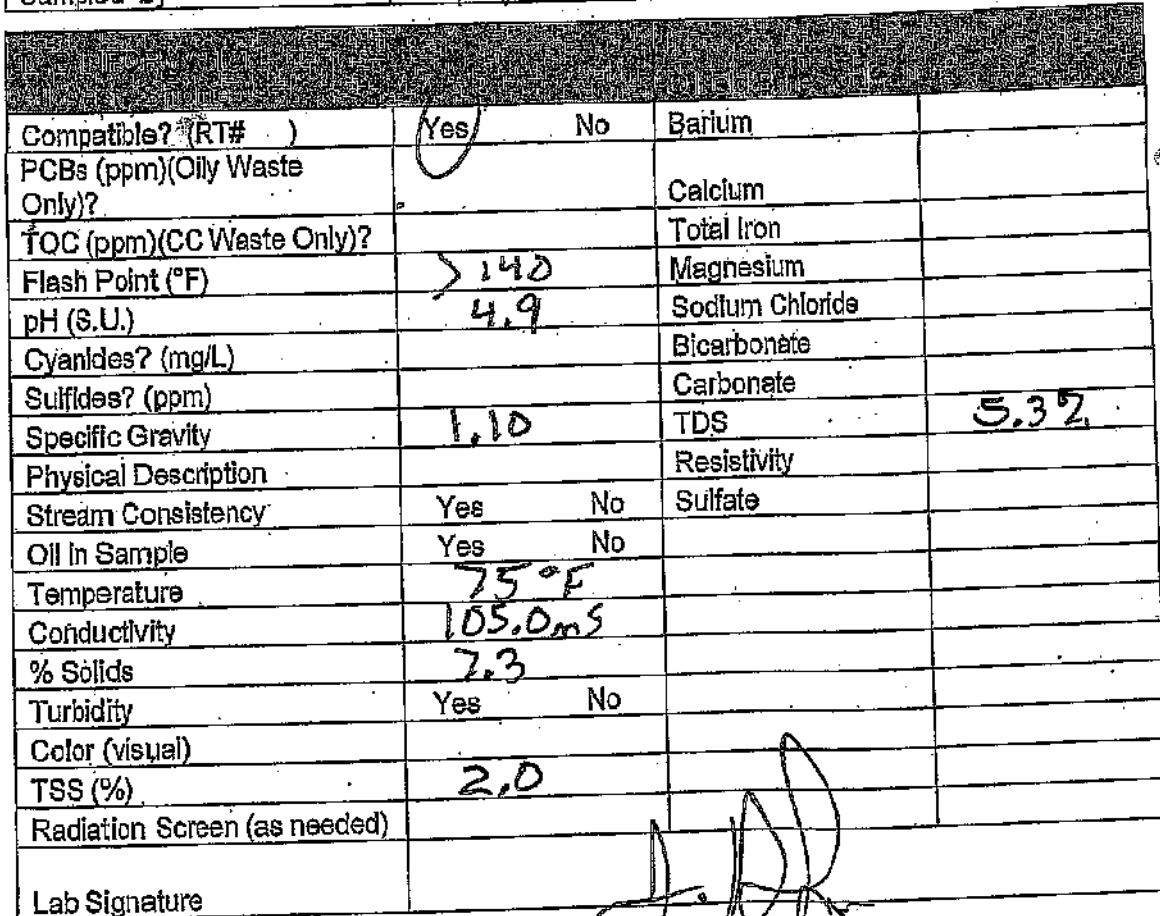 Compatible? (RT# ) Yes No Barium
PCBs (ppm)(Oily Waste
Only)? Calcium
TOC (ppm)(CC Waste Only)? Total Iron
Flash Point (°F) >140 Magnesium
pH (S.U.) 4.9 Sodium Chloride
Cyanides? (mg/L) Bicarbonate
Sulfides? (ppm) Carbonate
Specific Gravity 1.10 TDS 5.3%
Physical Description Resistivity
Stream Consistency Yes No Sulfate
Oil in Sample Yes No
Temperature 75°F
Conductivity 105.0mS
% Solids 7.3
Turbidity Yes No
Color (visual)
TSS (%) 2.0
Radiation Screen (as needed)
Lab Signature